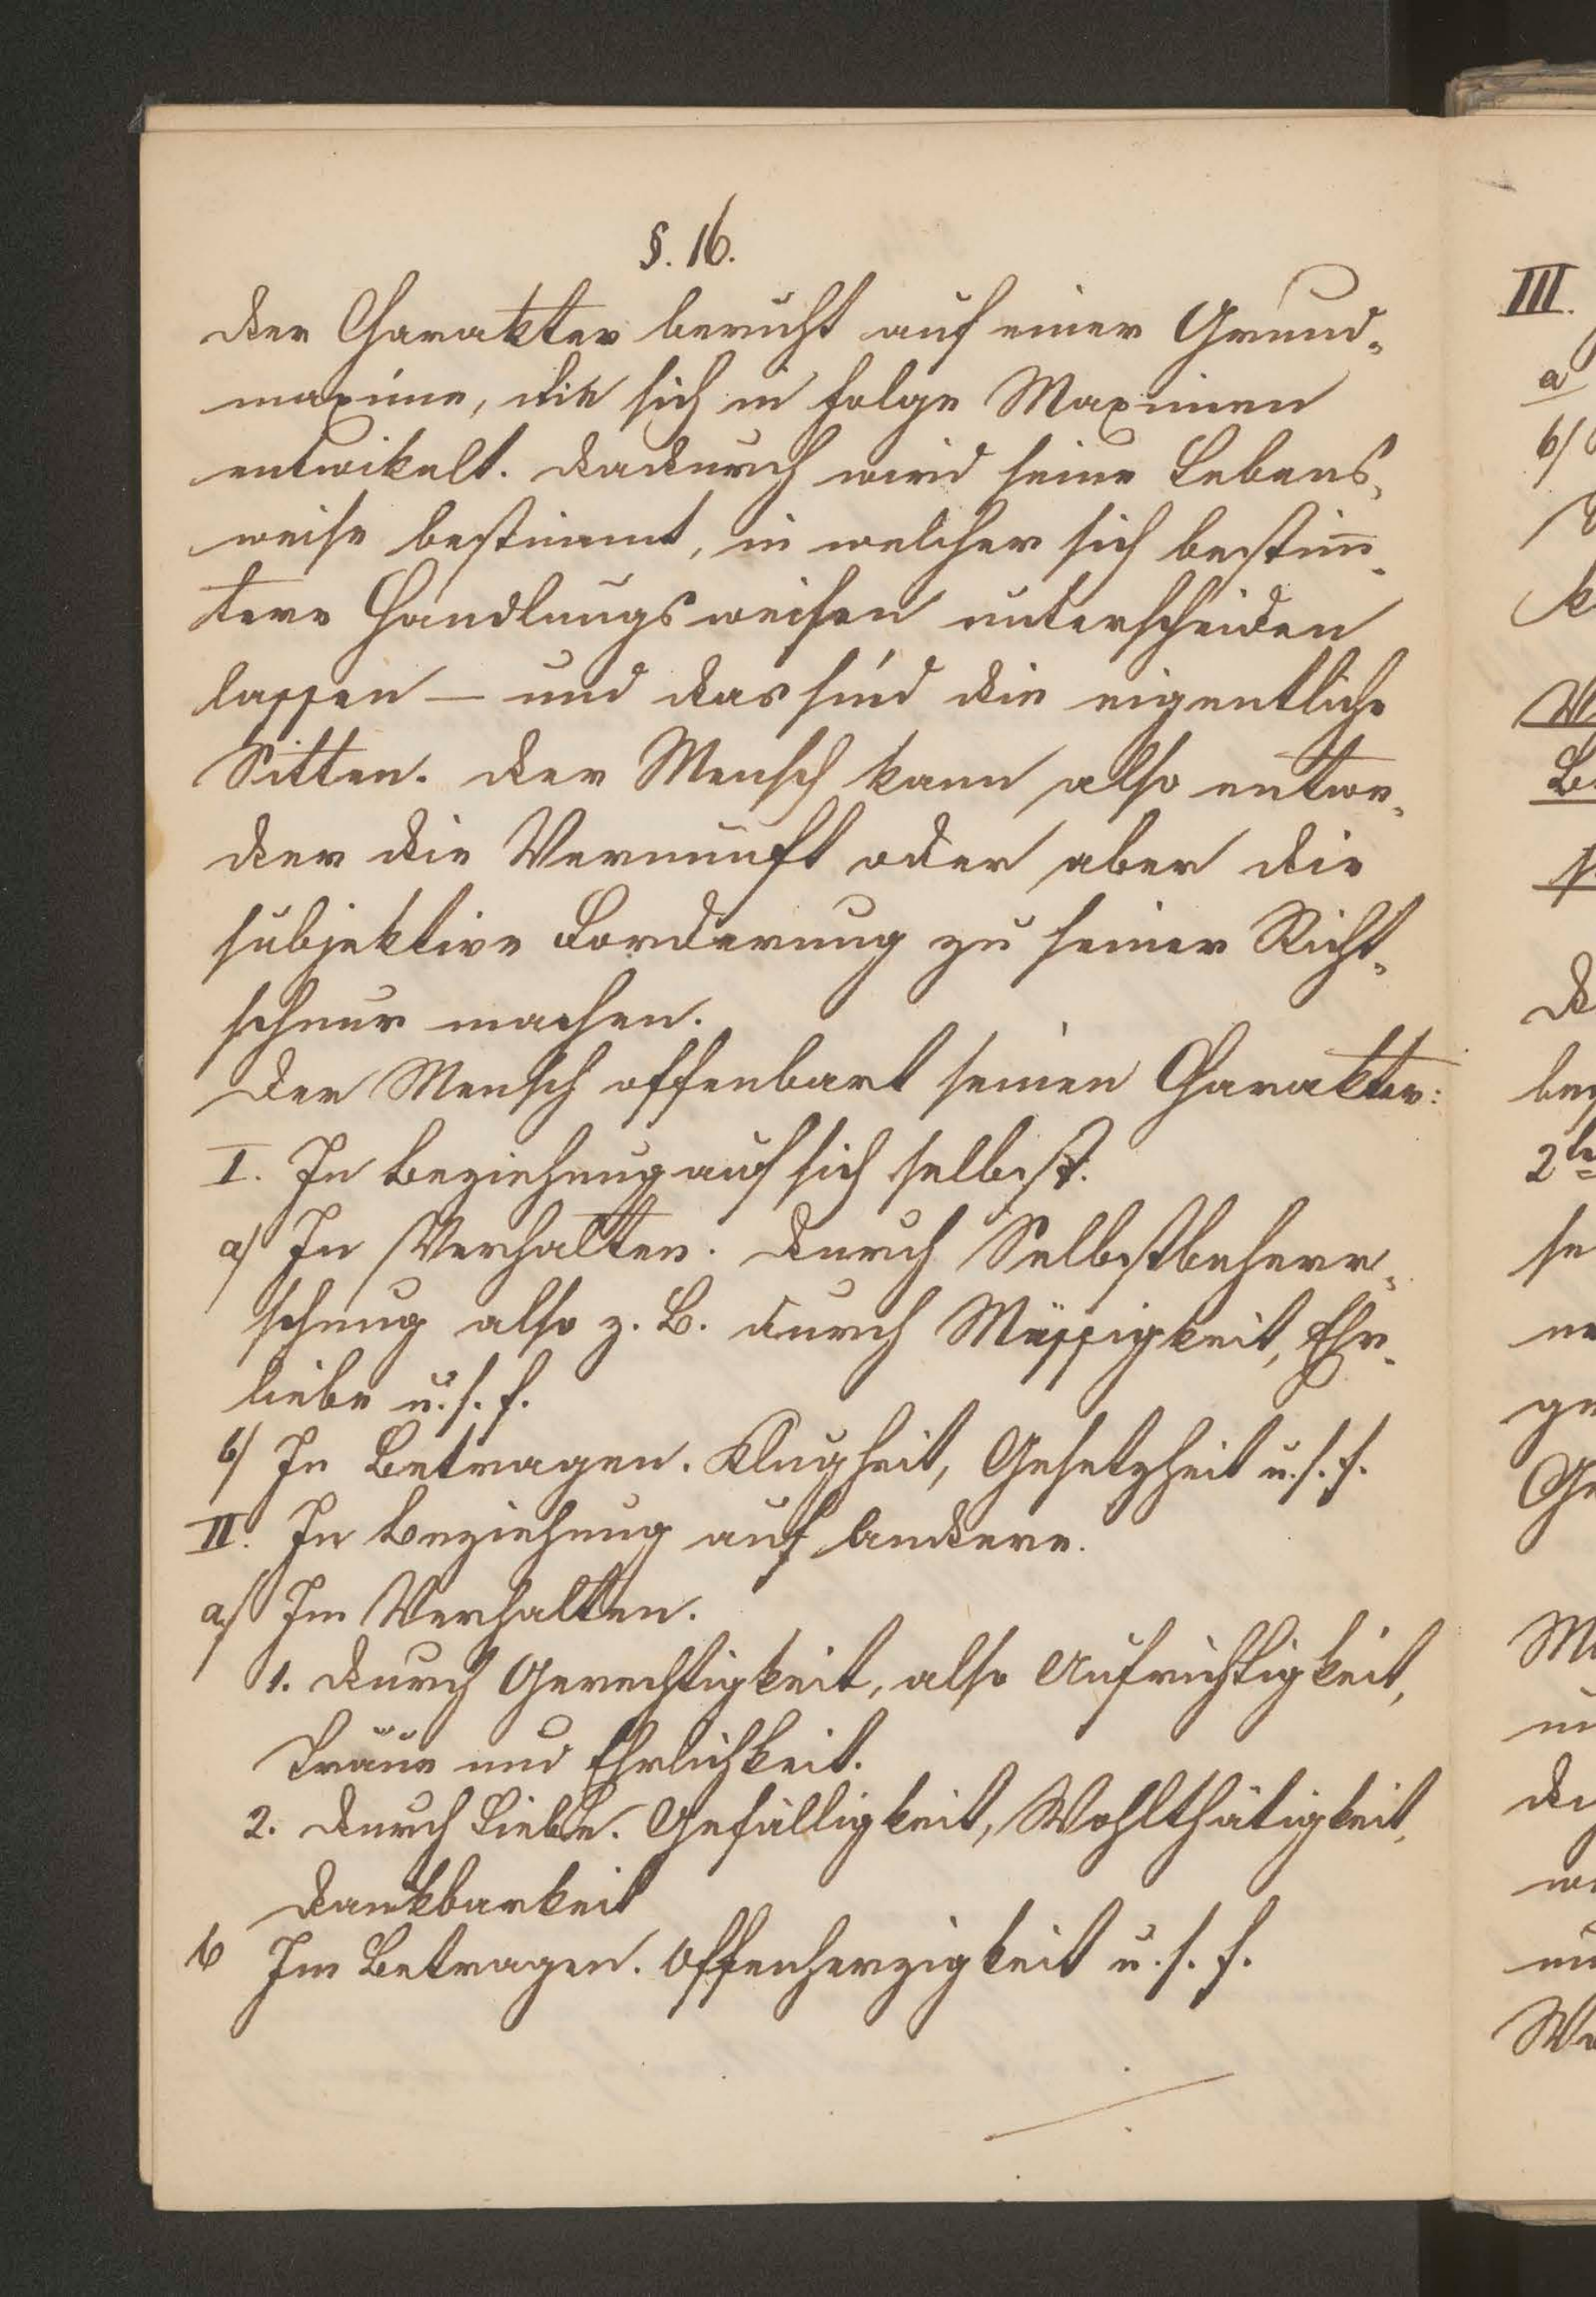 §. 16.
Der Charakter beruht auf einer Grund-
maxime, die sich in Folge Maximen
entwikelt. Dadurch wird seine Lebens-
weise bestimmt, in welcher sich bestim̅-
tere Handlungsweisen unterscheiden
lassen — und das sind die eigentliche
Sitten. Der Mensch kann also entwe-
der die Vernunft oder aber die
subjektive Forderung zu seiner Richt-
schnur machen.
Der Mensch offenbart seinen Charakter:
I. In Beziehung auf sich selbst.
a/ In Verhalten. Durch Selbstbeherr-
schung also z. B. durch Mässigkeit, Ehr-
liebe u. s. f.
b/ In Betragen. Klugheit, Gesetzheit u. s. f.
II. In Beziehung auf Andere.
a/ Im Verhalten.
1. Durch Gerechtigkeit, also Aufrichtigkeit,
Träue und Ehrlichkeit.
2. Durch Liebe. Gefälligkeit, Wohlthätigkeit,
Dankbarkeit
b Im Betragen. Offenherzigkeit u. s. f.
III.
a
b/